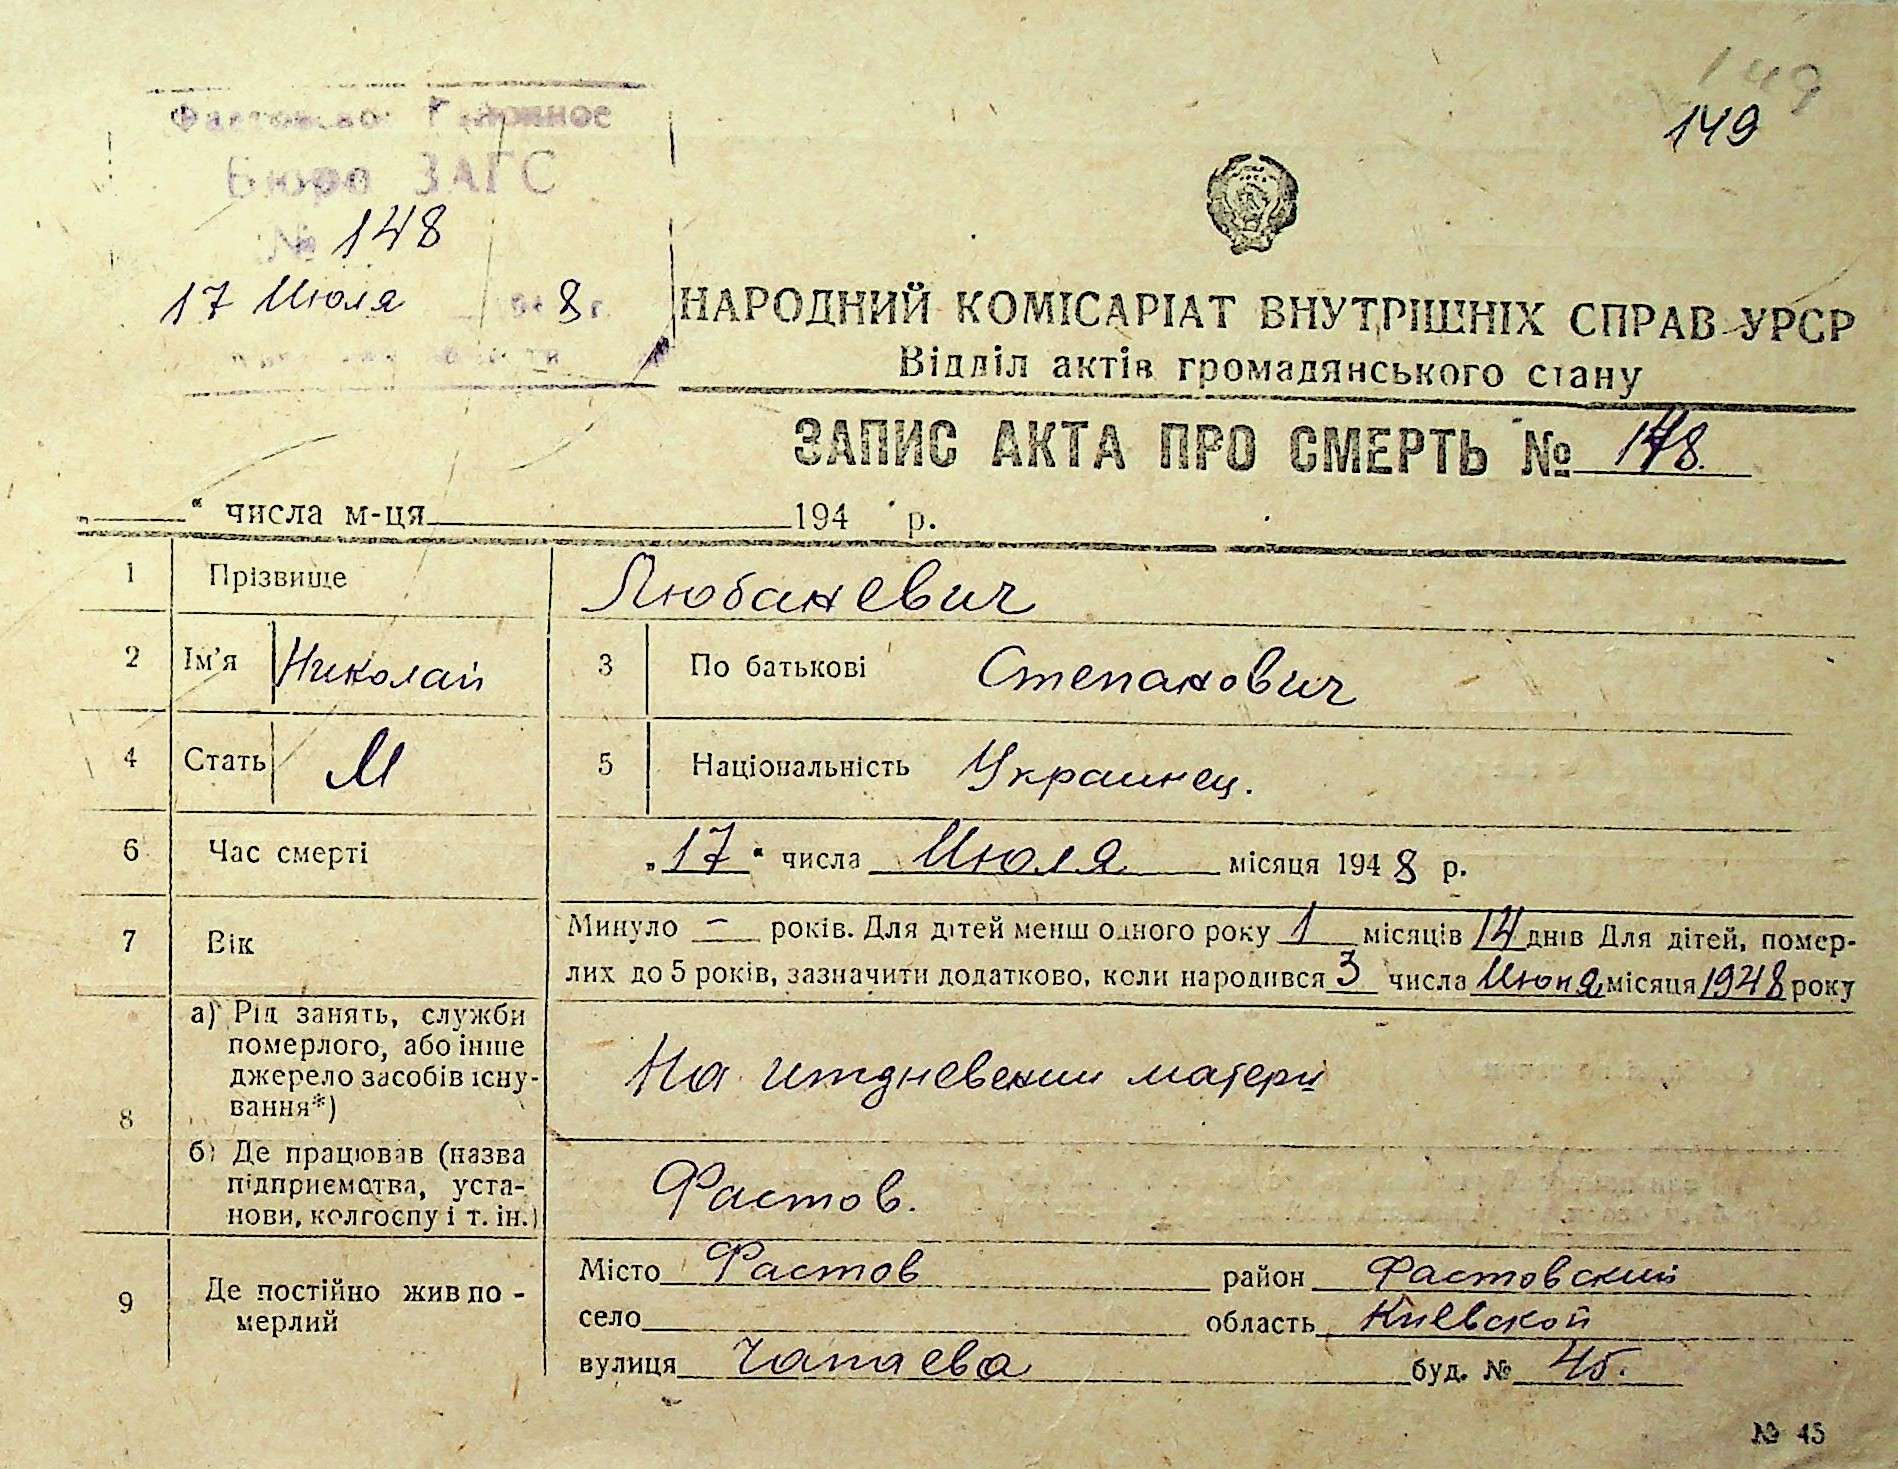 149
149
Бюро ЗАГС
№ 148
17 Июля 8 г.
НАРОДНИЙ КОМІСАРІАТ ВНУТРІШНІХ СПРАВ УРСР
Відділ актів громадянського стану
ЗАПИС АКТА ПРО СМЕРТЬ № 148.
„ “ числа м-ця 194 р.
1 Прізвище Любаневич
2 Ім’я Николай 3 По батькові Степанович
4 Стать М 5 Національність Украинец.
6 Час смерті „17“ числа Июля місяця 1948 р.
7 Вік Минуло — років. Для дітей менш одного року 1 місяців 14 днів Для дітей, помер-
лих до 5 років, зазначити додатково, коли народився 3 числа Июня місяця 1948 року
8 а) Рід занять, служби
померлого, або інше
джерело засобів існу-
вання*) На иждневении матери
б) Де працював (назва
підприємства, уста-
нови, колгоспу і т. ін.) Фастов.
9 Де постійно жив по-
мерлий
Місто Фастов район Фастовский
село область Киевской
вулиця Чапаева буд. № 45.
№ 45